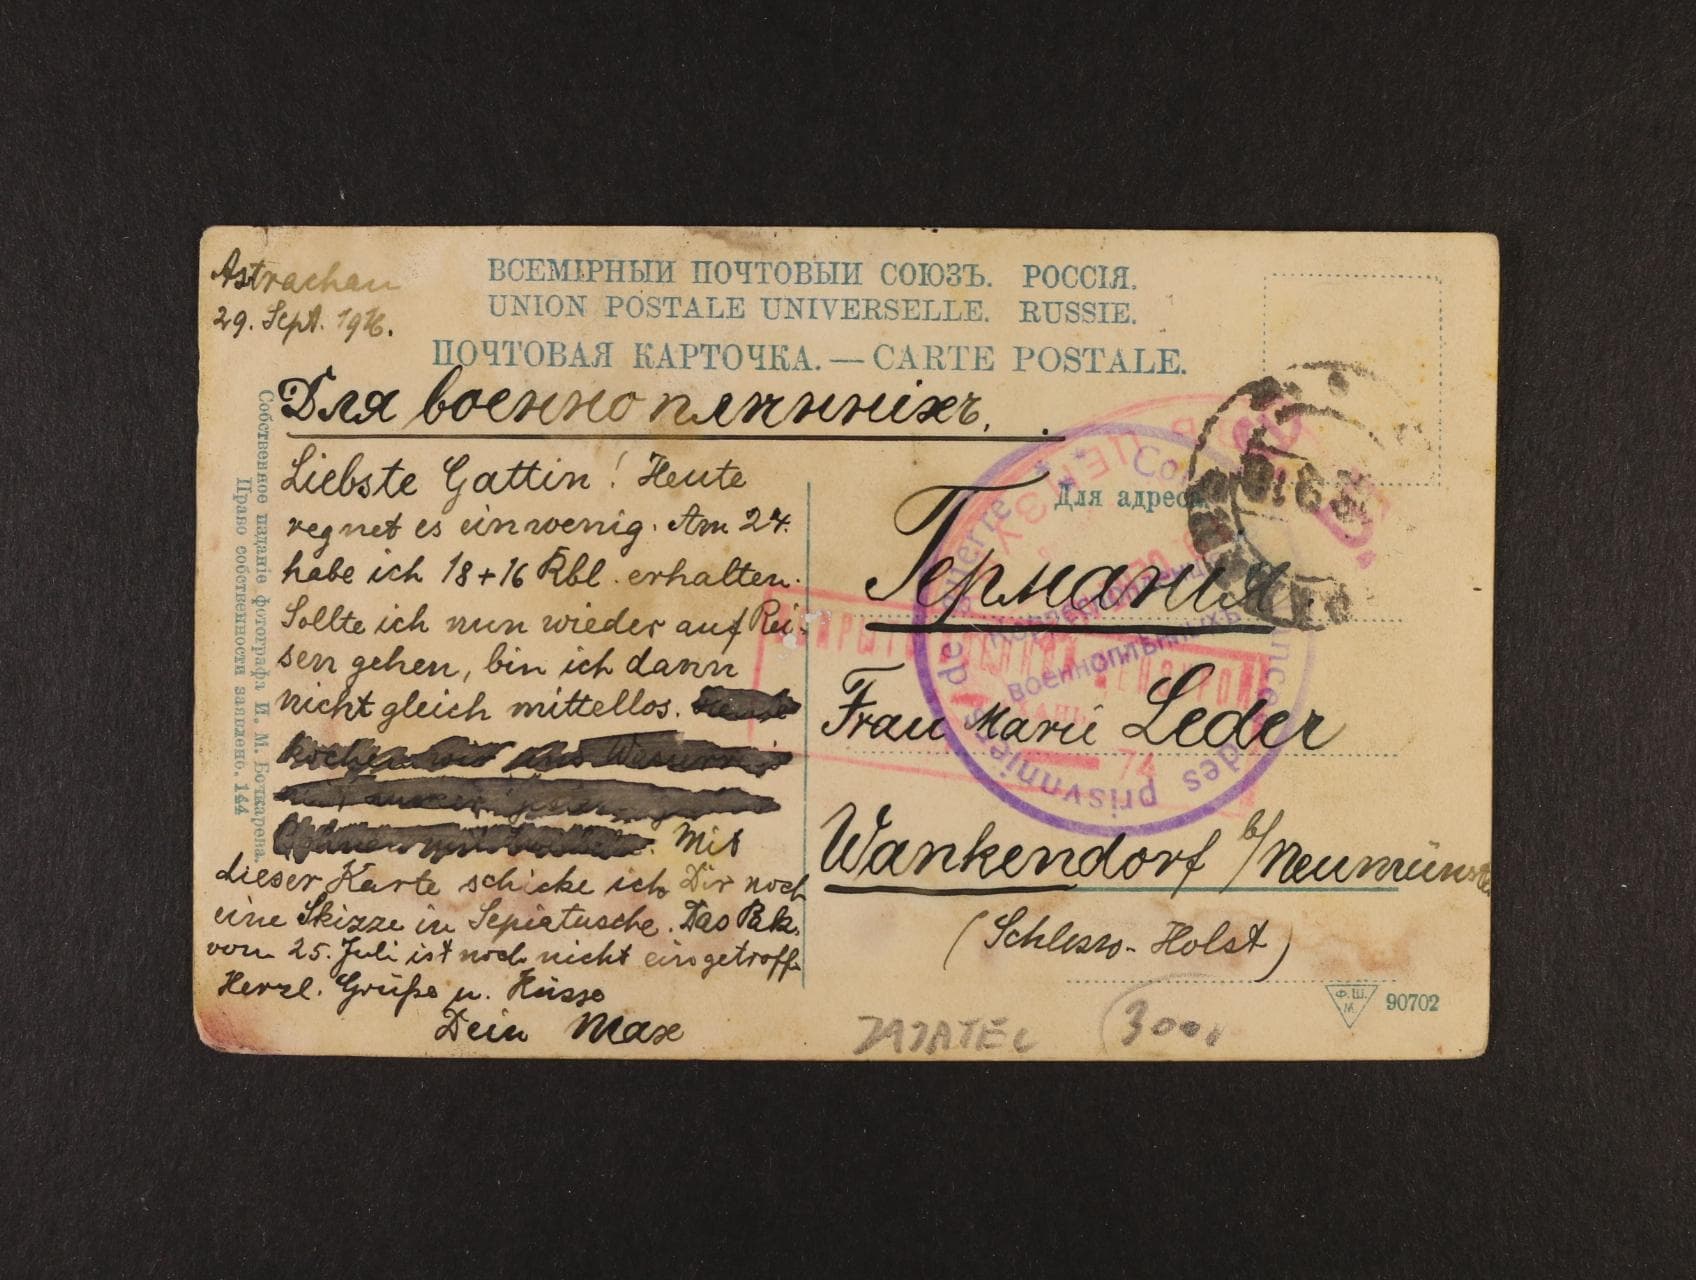 Astrachan
29. Sept. 1916.
ВСЕМІРНЫЙ ПОЧТОВЫЙ СОЮЗЪ. РОССІЯ.
UNION POSTALE UNIVERSELLE. RUSSIE.
ПОЧТОВАЯ КАРТОЧКА. — CARTE POSTALE.
Для военно плѣнныхъ.
Liebste Gattin! Heute
regnet es ein wenig. Am 24.
habe ich 18+16 Rbl. erhalten.
Sollte ich nun wieder auf Rei-
sen gehen, bin ich dann
nicht gleich mittellos.
Mit
dieser Karte schicke ich Dir noch
eine Skizze in Sepiatusche. Das Pak.
vom 25. Juli ist noch nicht eingetroff.
Herzl. Grüße u. Küsse
Dein Max
Собственное изданіе фотографа И. М. Бочкарева.
Право собственности заявлено. 144
Для адреса
Германия.
Frau Marie Leder
Wankendorf b/Neumünster
(Schlesw.-Holst)
военноплѣнныхъ
74
Ф.Ш.
М.
90702
300